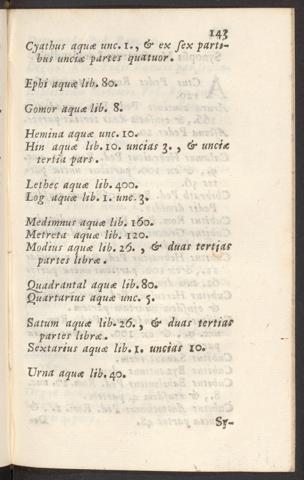 143
Cyathus aquæ unc. 1., & ex sex parti-
bus unciæ partes quatuor.
Ephi aquæ lib. 80.
Gomor aquæ lib. 8.
Hemina aquæ unc. 10.
Hin aquæ lib. 10. uncias 3., & unciæ
tertia pars.
Lethec aquæ lib. 400.
Log aquæ lib. 1. unc. 3.
Medimnus aquæ lib. 160.
Metreta aquæ lib. 120.
Modius aquæ lib. 26., & duas tertias
partes libræ.
Quadrantal aquæ lib. 80.
Quartarius aquæ unc. 5.
Satum aquæ lib. 26., & duas tertias
partes libræ.
Sextarius aquæ lib. 1. uncias 10.
Urna aquæ lib. 40.
Sy-